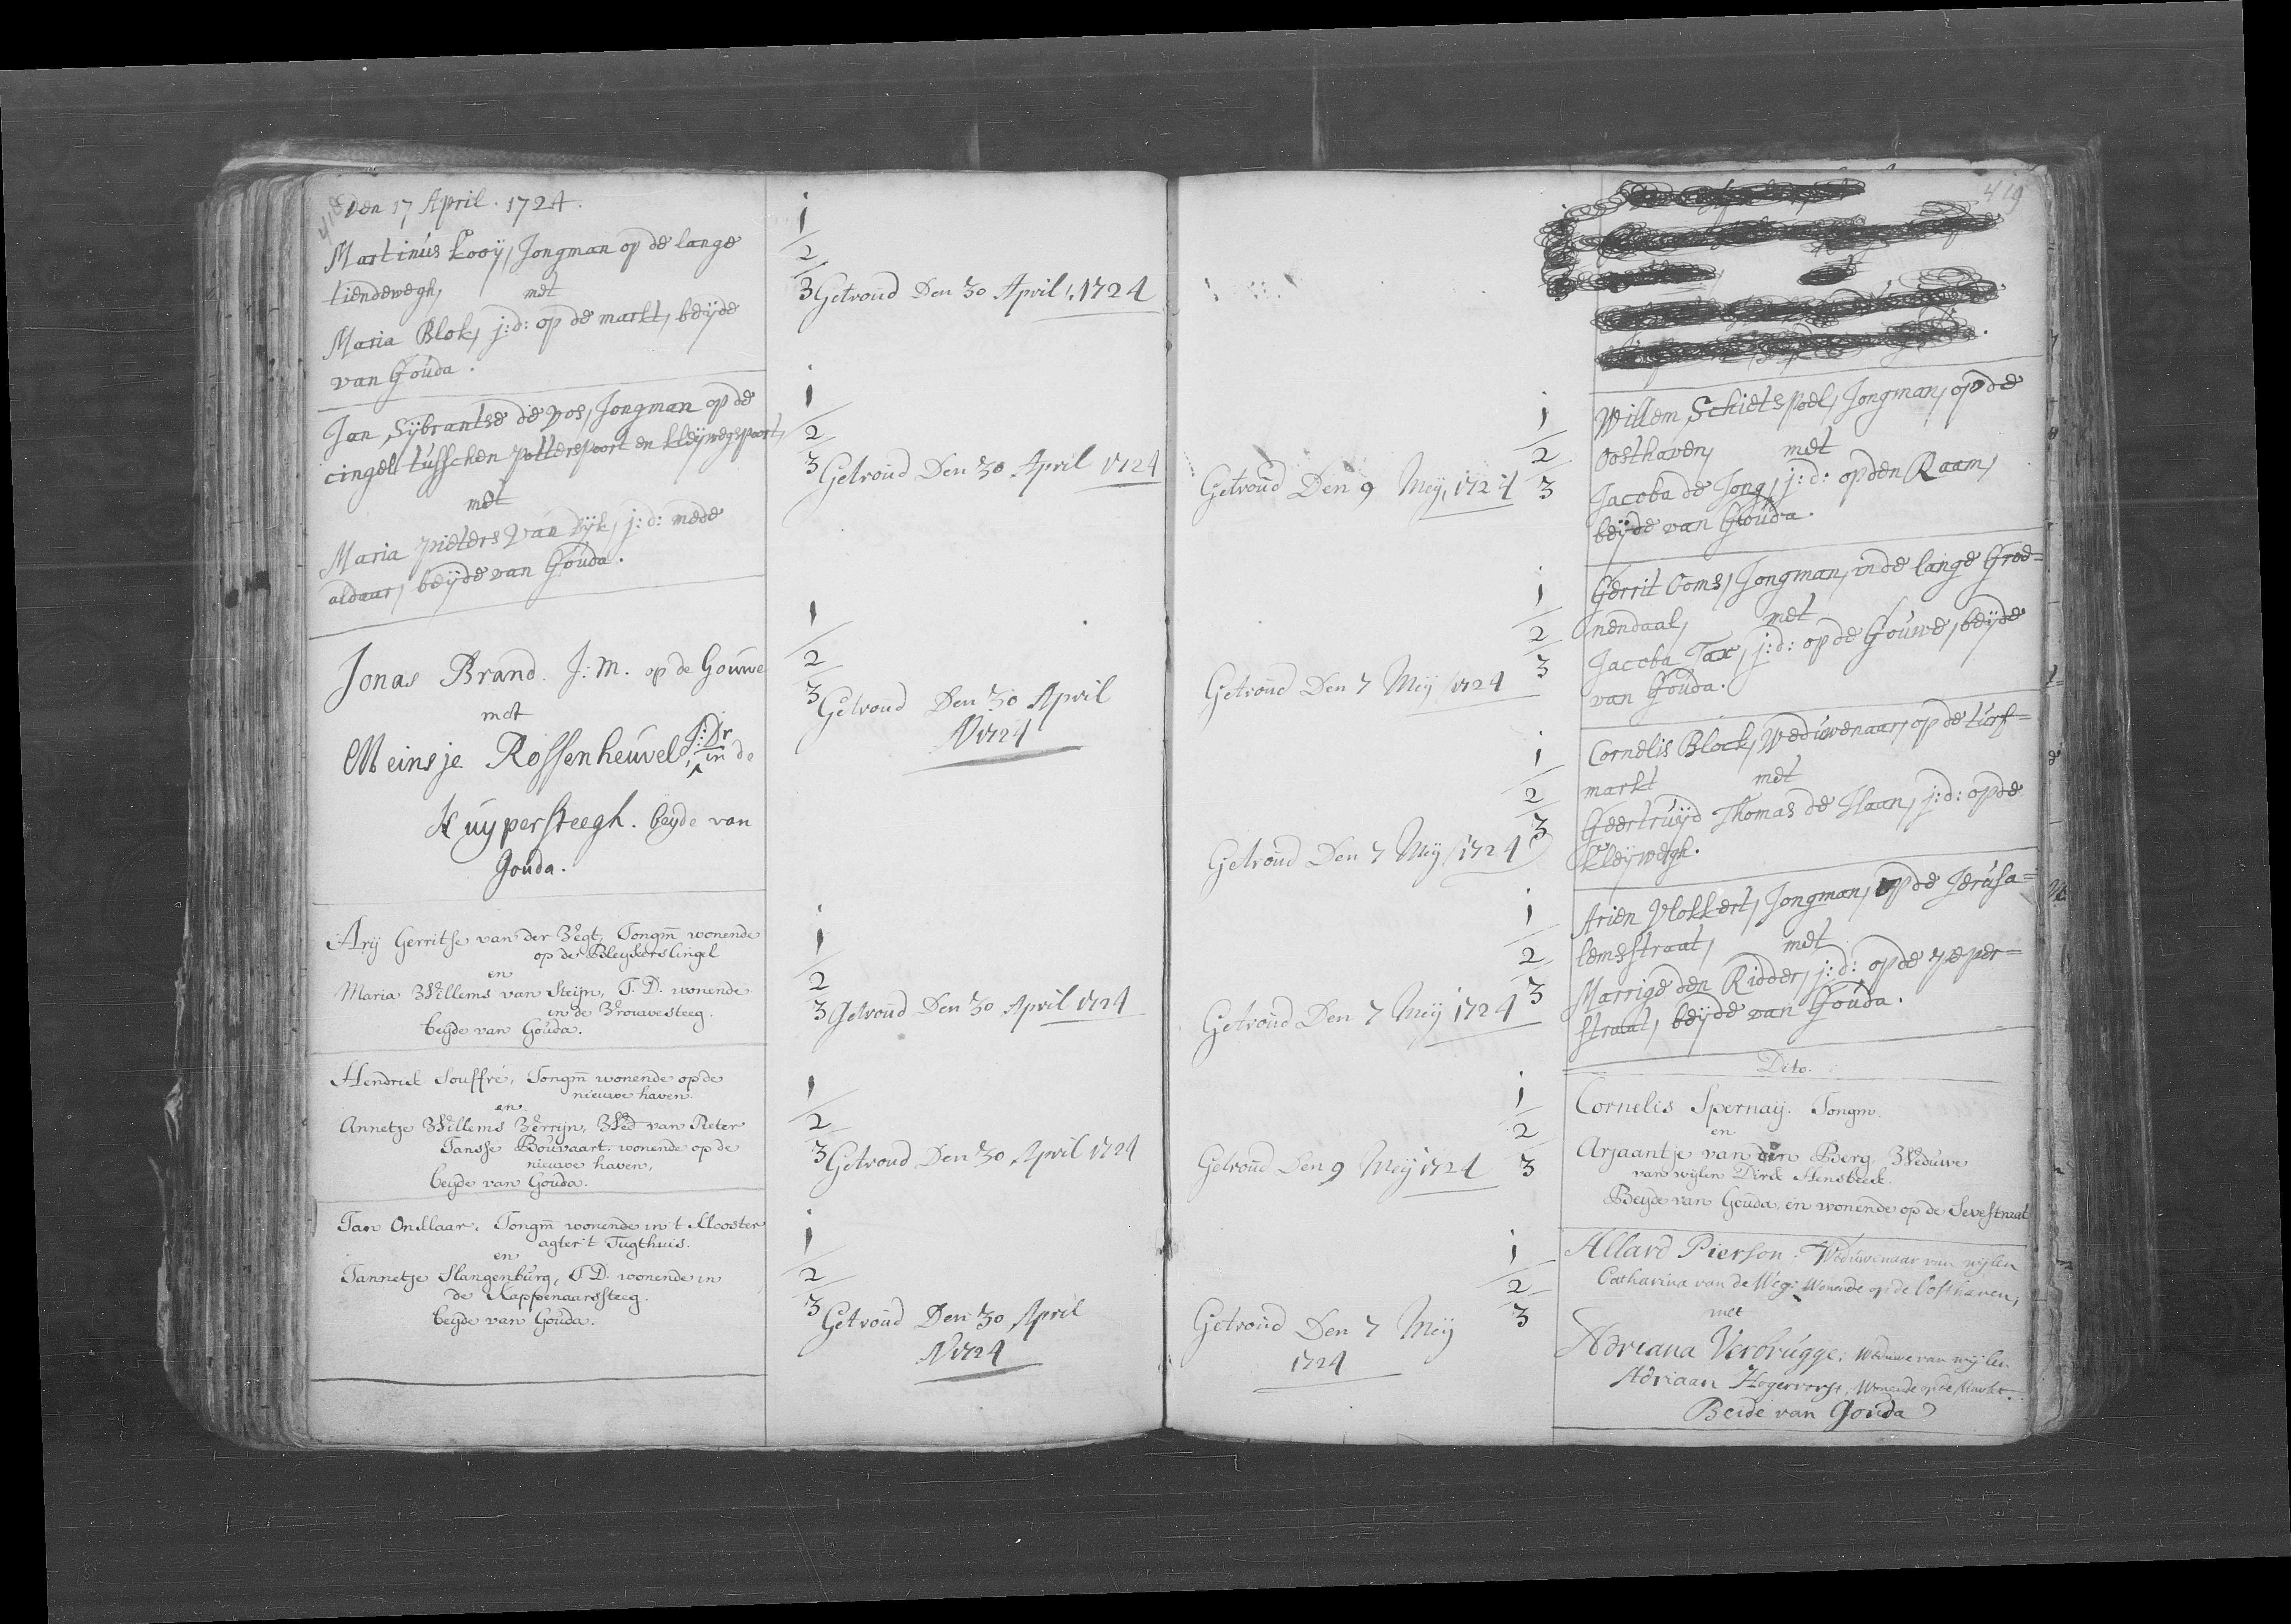 418
Den 17 April. 1724.
Martinus Kooij, Jongman op de lange
tiendewegh, met
Maria Blok, j:d: op de markt, beijde
van Gouda.
1
2
3 Getroud Den 30 April 1724
Jan Sijbrantse de Vos, Jongman op de
cingel tusschen potterspoort en kleijwegspoort,
met
Maria pieters Van Dijk, j:d: mede
aldaar, beijde van Gouda.
1
2
3 Getroud Den 30 April 1724
Jonas Brand. J: M. op de Gouwe
met
Meinsje Rossenheuvel, J: Dr in de
Kuypersteegh. beyde van
Gouda.
1
2
3 Getroud Den 30 April
1724
Arij Gerritse van der Vegt, Jongm̄ wonende
op de Bleykerscingel
en
Maria Willems van Steijn, J. D. wonende
in de Vrouwesteeg.
beyde van Gouda.
1
2
3 Getroud Den 30 April 1724
Hendrick Souffré, Jongm̄ wonende op de
nieuwe haven.
en
Annetje Willems Verrijn, Wed van Pieter
Jansse Bouvaart. wonende op de
nieuwe haven,
beyde van Gouda.
1
2
3 Getroud Den 30 April 1724
Jan Onklaar. Jongm̄ wonende in 't Klooster
agter 't Tugthuis.
en
Jannetje Slangenburg, J. D. wonende in
de Kappenaarssteeg.
beyde van Gouda.
1
2
3 Getroud Den 30 April
1724
419
Willem Schietspoel, Jongman, op de
Oosthaven, met
Jacoba de Jong, j:d: op den Raam,
beijde van Gouda.
1
2
Getroud Den 9 Meij, 1724 3
Gerrit Ooms, Jongman, in de lange Groe=
nendaal, met
Jacoba Tax, j:d: op de Gouwe, beijde
van Gouda.
1
2
3
Getroud Den 7 Meij 1724
Cornelis Block, Weduwenaar, op de turf=
markt met
Geertruijd Thomas de Haan, j:d: op de
Kleijwegh.
1
2
3
Getroud Den 7 Meij 1724
Arien Vlokkert, Jongman, op de Jerusa=
lemsstraat, met
Marrige den Ridder, j:d: op de peper=
straat, beijde van Gouda.
1
2
Getroud Den 7 Meij 1724 3
Dito.
Cornelis Spernaij. Jongm.
en
Arjaantje van den Berg Weduwe
van wijlen Dirck Hensbeek.
Beyde van Gouda, en wonende op de Sevestraat
1
2
Getroud Den 9 Meij 1724 3
Allard Pierson, Weduwenaar van wijlen
Catharina van de Weg: Wonende op de Oosthaven,
met
Adriana Verbrugge; Weduwe van wijlen
Adriaan Hogervorst, Wonende op de Markt.
Beide van Gouda
1
2
3
Getroud Den 7 Meij
1724